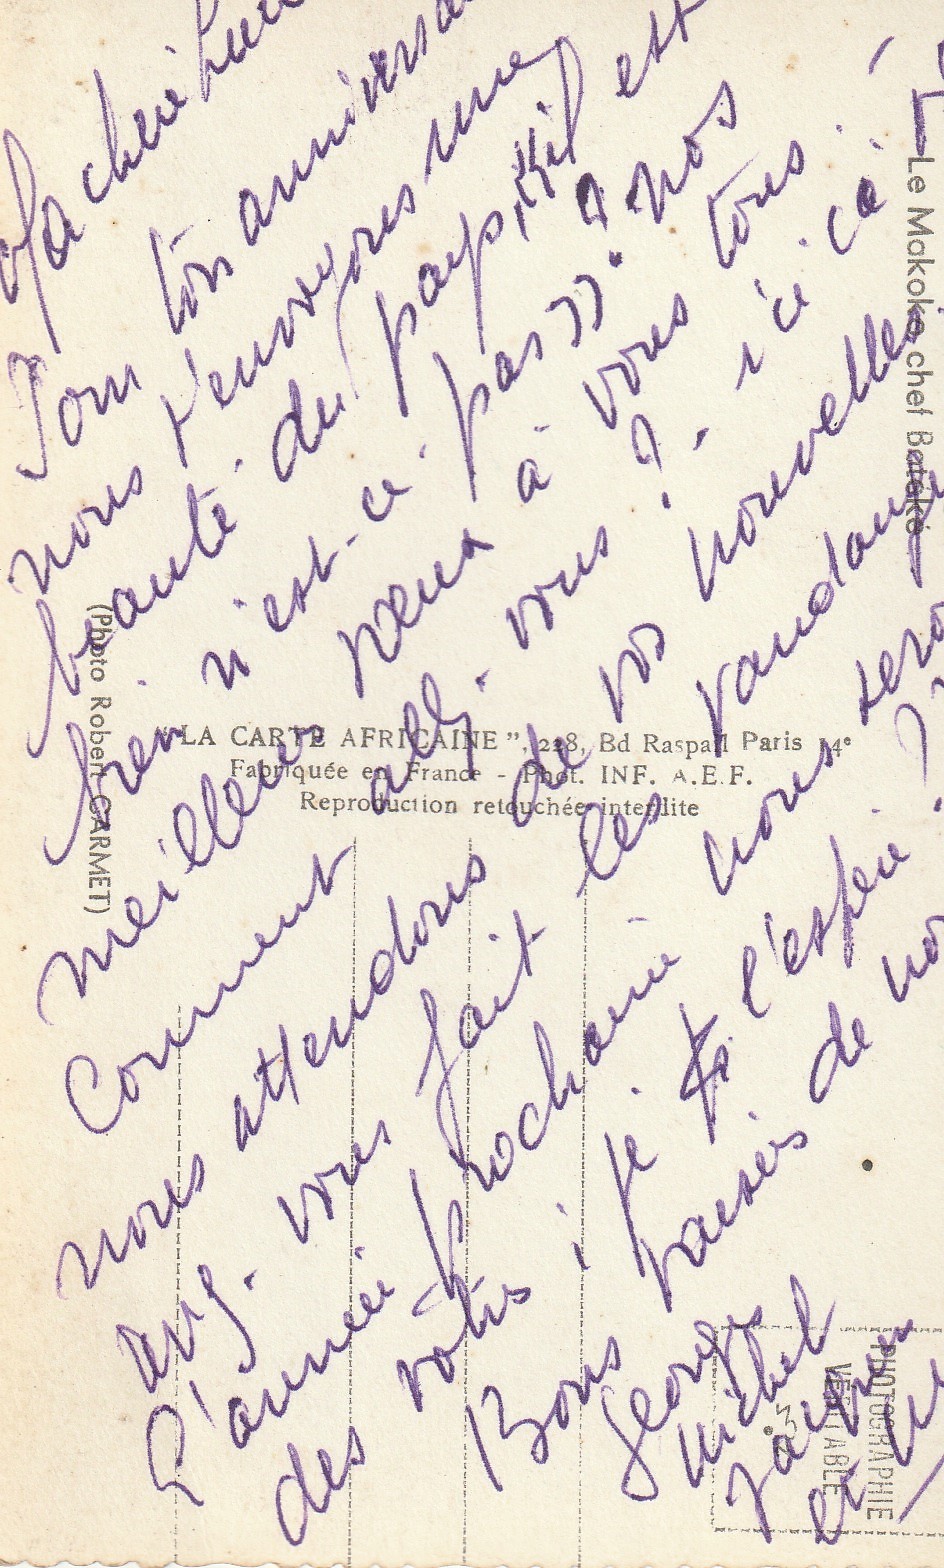 Ma chérie
Pour ton anniversa
nous t'envoyons une
beauté du pays, il est
bien n'est-ce pas ?? nos
meilleurs vœux à vous tous.
Comment allez-vous ? - ici ça
nous attendons de vos nouvelles
avez-vous fait les vendang
L'année prochaine nous sero
des votres, je l'espère.
Bons baisers de no
Georges
Michel
et
Le Makoko chef Batéké
(Photo Robert CARMET)
"LA CARTE AFRICAINE", 228, Bd Raspail Paris 14e
Fabriquée en France - Phot. INF. A.E.F.
Reproduction retouchée interdite
PHOTOGRAPHIE
VÉRITABLE